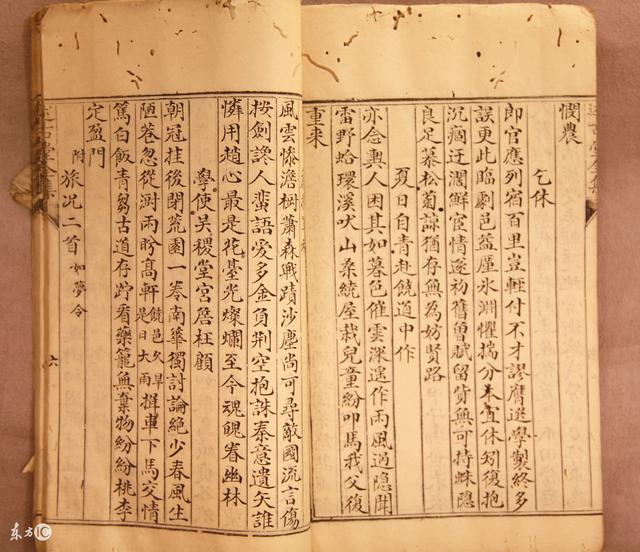 憫農
乞休
即官應列宿百里豈輕付不才謬膺選學製終多
誤更此臨劇邑益厪氷淵懼揣分本宜休矧復抱
沉痼迂濶鮮宦情遂初舊曾賦留貲無可持蛛隠
良足慕松菊諒猶存無為妨賢路
夏日自青赴饒道中作
亦念輿人困其如暮色催雲深遥作雨風過隠聞
雷野蛤環溪吠山桑繞屋栽兒童紛叩馬我父復
重来
風雲惨澹樹蕭森戰蹟沙塵尚可尋敵國流言傷
按劍讒人蜚語愛多金負荆空抱誅秦意遺矢誰
憐用趙心最是花臺光燦爛至今魂魄眷幽林
學使吴稷堂宫詹枉顧
朝冠挂後閉荒園一卷南華獨討論絶少春風生
陋巷忽從澍雨盼高軒饒邑久旱是日大雨撵車下馬交情
篤白飯青芻古道存跱看藥籠無棄物紛紛桃李
定盈門
附旅况二首如夢令
六
东方IC